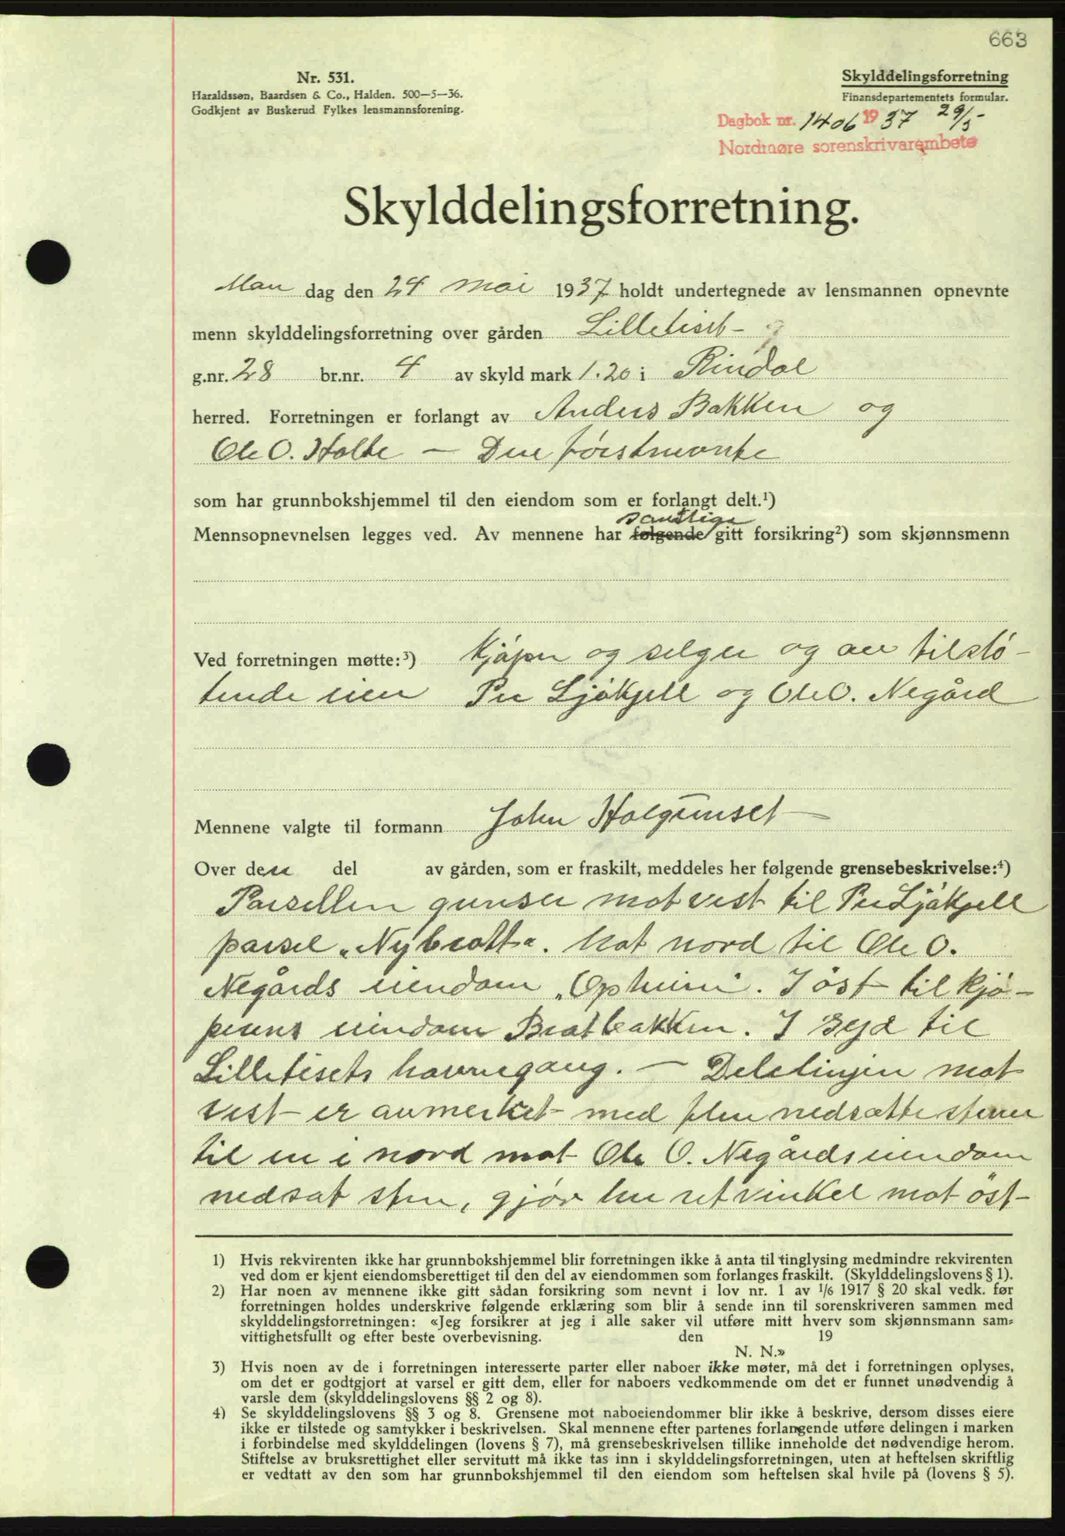 663
Nr. 531.
Haraldssøn, Baardsen & Co., Halden. 500—5—36.
Godkjent av Buskerud Fylkes lensmannsforening.
Skylddelingsforretning
Finansdepartementets formular.
Dagbok nr. 1406 1937 29/5
Nordmøre sorenskrivarembete
Skylddelingsforretning.
Man dag den 24 mai 1937 holdt undertegnede av lensmannen opnevnte
menn skylddelingsforretning over gården Lilletiset
g.nr. 28 br.nr. 4 av skyld mark 1.20 i Rindal
herred. Forretningen er forlangt av Anders Bakken og
Ole O. Holte — Den førstnevnte
som har grunnbokshjemmel til den eiendom som er forlangt delt.¹)
samtlige
Mennsopnevnelsen legges ved. Av mennene har følgende gitt forsikring²) som skjønnsmenn
Ved forretningen møtte:³) Kjøper og selger og av tilstø-
tende eien Per Ljøkjell og Ole O. Negård
Mennene valgte til formann John Holgunset —
Over den del av gården, som er fraskilt, meddeles her følgende grensebeskrivelse:⁴)
Parsellen grenser mot vest til Per Ljøkjell
parsel „Nybrott". Mot nord til Ole O.
Negårds eiendom „Opheim". I øst til kjø-
perens eiendom Bratbakken. I syd til
Lilletisets havnegang. — Delelinjen mot
vest er avmerket med flere nedsatte stener
til en i nord mot Ole O. Negårds eiendom
nedsat sten, gjør her ret vinkel mot øst
1) Hvis rekvirenten ikke har grunnbokshjemmel blir forretningen ikke å anta til tinglysing medmindre rekvirenten
ved dom er kjent eiendomsberettiget til den del av eiendommen som forlanges fraskilt. (Skylddelingslovens § 1).
2) Har noen av mennene ikke gitt sådan forsikring som nevnt i lov nr. 1 av 1/6 1917 § 20 skal vedk. før
forretningen holdes underskrive følgende erklæring som blir å sende inn til sorenskriveren sammen med
skylddelingsforretningen: «Jeg forsikrer at jeg i alle saker vil utføre mitt hverv som skjønnsmann sam-
vittighetsfullt og efter beste overbevisning. den 19
N. N.»
3) Hvis noen av de i forretningen interesserte parter eller naboer ikke møter, må det i forretningen oplyses,
om det er godtgjort at varsel er gitt dem, eller for naboers vedkommende om det er funnet unødvendig å
varsle dem (skylddelingslovens §§ 2 og 8).
4) Se skylddelingslovens §§ 3 og 8. Grensene mot naboeiendommer blir ikke å beskrive, dersom disses eiere
ikke er tilstede og samtykker i beskrivelsen. Skal mennene efter partenes forlangende utføre delingen i marken
i forbindelse med skylddelingen (lovens § 7), må grensebeskrivelsen tillike inneholde det nødvendige herom.
Stiftelse av bruksrettighet eller servitutt må ikke tas inn i skylddelingsforretningen, uten at heftelsen skriftlig
er vedtatt av den som har grunnbokshjemmel til den eiendom som heftelsen skal hvile på (lovens § 5).